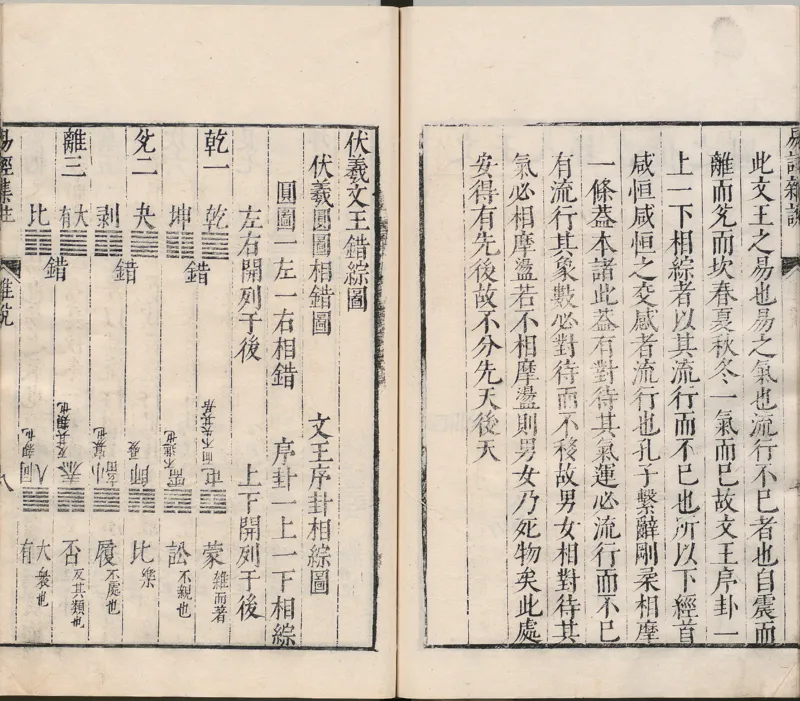 此文王之易也易之氣也流行不已者也自震而
離而兌而坎春夏秋冬一氣而已故文王序卦一
上一下相綜者以其流行而不已也所以下經首
咸恒咸恒之交感者流行也孔子繫辭剛柔相摩
一條蓋本諸此蓋有對待其氣運必流行而不已
有流行其象數必對待而不移故男女相對待其
氣必相摩盪若不相摩盪則男女乃死物矣此處
安得有先後故不分先天後天
伏羲文王錯綜圖
伏羲圓圖相錯圖 文王序卦相綜圖
圓圖一左一右相錯 序卦一上一下相綜
左右開列于後 上下開列于後
乾一 乾 屯 見而不失其居 蒙 雜而著
錯
坤 需 不進也 訟 不親也
兌二 夬 師 憂 比 樂
錯
剝 小畜 寡也 履 不處也
離三 大有 泰 反其類也 否 反其類也
錯
比 同人 親也 大有 衆也
易經集註 雜說 八